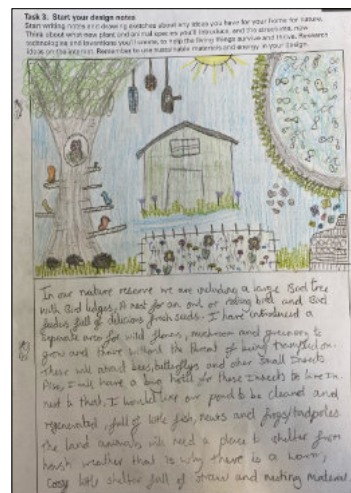 Task 3. Start your design notes
Start writing notes and drawing sketches about any ideas you have for your home for nature.
Think about what new plant and animal species you'll introduce, and the structures, new
technologies and inventions you'll create, to help the living things survive and thrive. Research
ideas on the internet. Remember to use sustainable materials and energy in your design.
In our nature reserve we are including a large Bird tree
with Bird ledges, A nest for an owl or bird and Bird
feeders full of delicious fresh seeds. I have introduced a
separate area for wild flowers, mushroom and greenery to
grow and thrive without the threat of being trampled on.
These will attract bees, butterflys and other small Insects
Also, I will have a bug hotel for those Insects to live In.
next to that, I would like our pond to be cleaned and
regenerated, full of little fish, newts and frogs/tadpoles
the land animals will need a place to shelter from
harsh weather that is why there is a warm,
cosy little shelter full of straw and nesting material